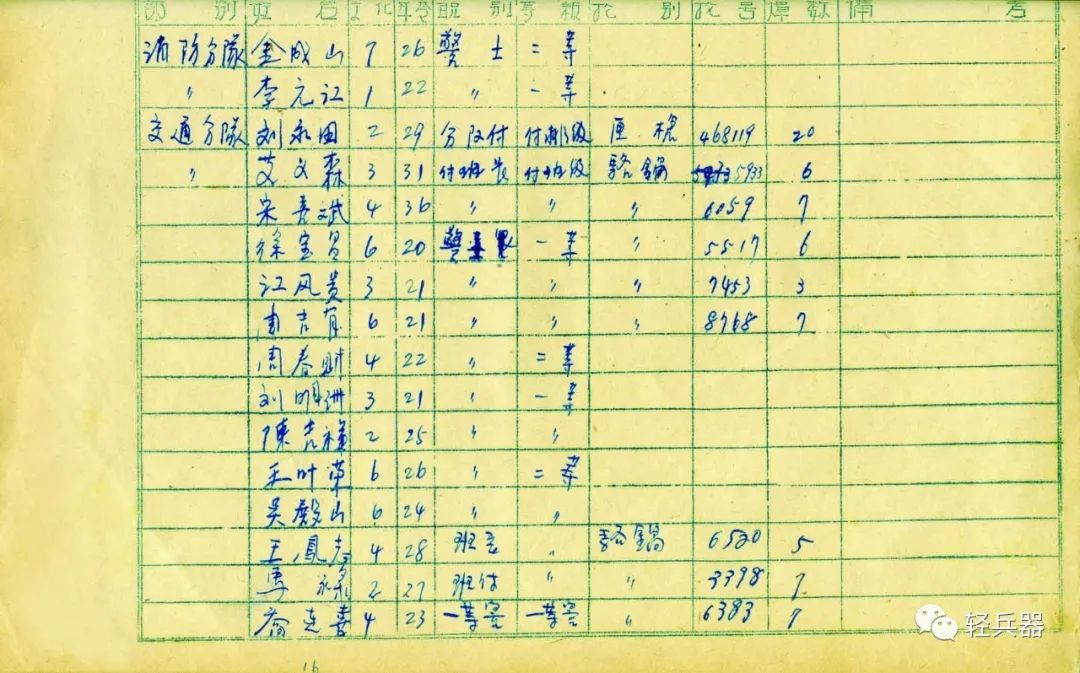 部 别 姓 名 文化 年令 职 别 等 级 枪 别 枪 号 弹数 備 考
消防分隊 金成山 7 26 警士 二等
〃 李元江 1 22 〃 一等
交通分隊 刘永田 2 29 分队付 付排级 匣枪 468119 20
〃 艾文森 3 31 付班长 付班级 駱鍋 5933 6
宋喜斌 4 36 〃 〃 〃 6059 7
徐宝昌 6 20 警 一等 〃 5517 6
江风贵 3 21 〃 〃 〃 7453 3
周吉 6 21 〃 〃 〃 8768 7
周春财 4 22 〃 二等
刘明洲 3 21 〃 一等
陳吉祥 2 25 〃 〃
王叶荣 6 26 〃 二等
吴殿山 6 24 〃 〃
王鳳 4 28 班长 〃 駱鍋 6520 5
馬 2 27 班付 〃 〃 3398 7
喬喜 4 23 一等 一等 〃 6383 7
16
轻兵器